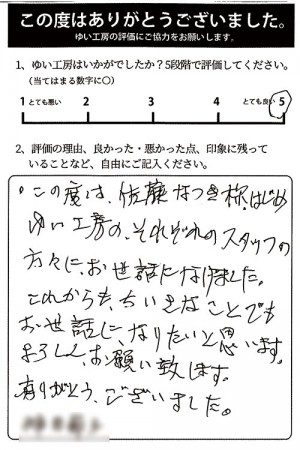 この度はありがとうございました。
ゆい工房の評価にご協力をお願いします。
1、ゆい工房はいかがでしたか？5段階で評価してください。
（当てはまる数字に○）
1 とても悪い 2 3 4 とても良い 5
2、評価の理由、良かった・悪かった点、印象に残って
いることなど、自由にご記入ください。
。この度は、佐藤なつき様、はじめ
ゆい工房の、それぞれのスタッフの
方々に、お世話になりました。
これからも、ちいさなことでも
お世話に、なりたいと思います。
よろしく、お願い致します。
有りがとう、ございました。